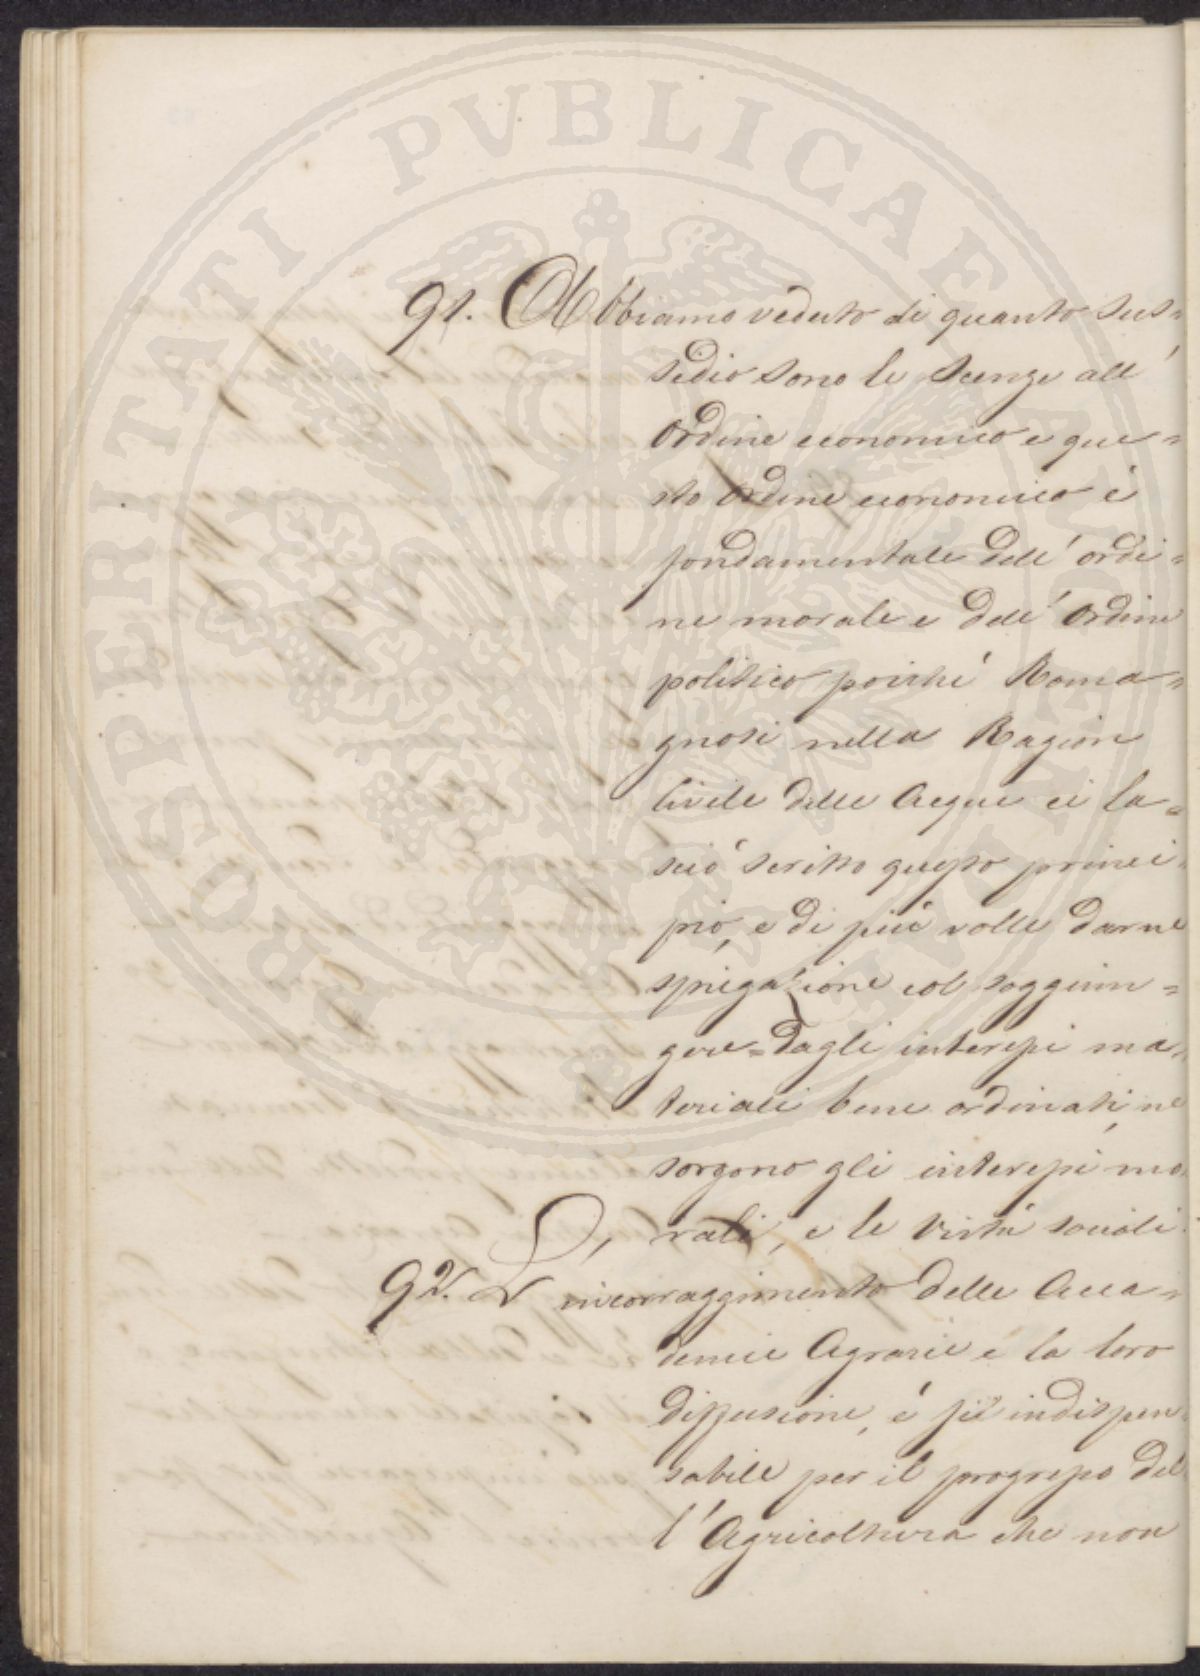 PROSPERITATI PVBLICAE AVGENDAE
91. Abbiamo veduto di quanto sus=
sidio sono le Scenze all'
Ordine economico e que=
sto Ordine economico é
fondamentale dell' ordi=
ne morale e dell' Ordine
politico poiché Roma=
gnosi nella Ragion
Civile delle Acque ci la=
sció scritto questo princi=
pio, e di piú volle darne
spiegazione col soggiun=
gere=dagli interessi ma=
teriali bene ordinati, ne
sorgono gli interessi mo=
rali, e le virtú sociali.
92. L' incorraggimento delle Acca=
demie Agrarie e la loro
diffusione, é sí indispen=
sabile per il progresso del=
l'Agricoltura che non